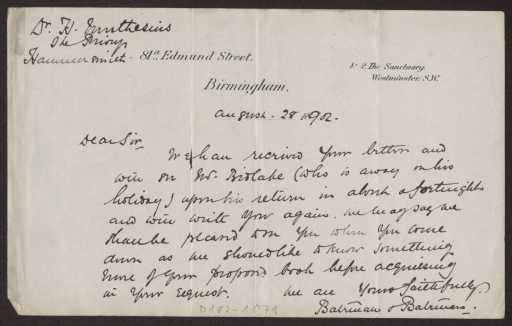 Dr. H. Muthesius
The Priory
Hammersmith.
81A, Edmund Street.
Birmingham.
1 & 2, The Sanctuary,
Westminster, S.W.
August. 28 1902.
Dear Sir,
We have received your letter and
will see Mr. Bidlake (who is away on his
holiday) upon his return in about a fortnight
and will write you again. We may say we
shall be pleased to see you when you come
down as we should like to know something
more of your proposed book before acquiescing
in your request. We are Yours faithfully
Bateman & Bateman.
D102-1571